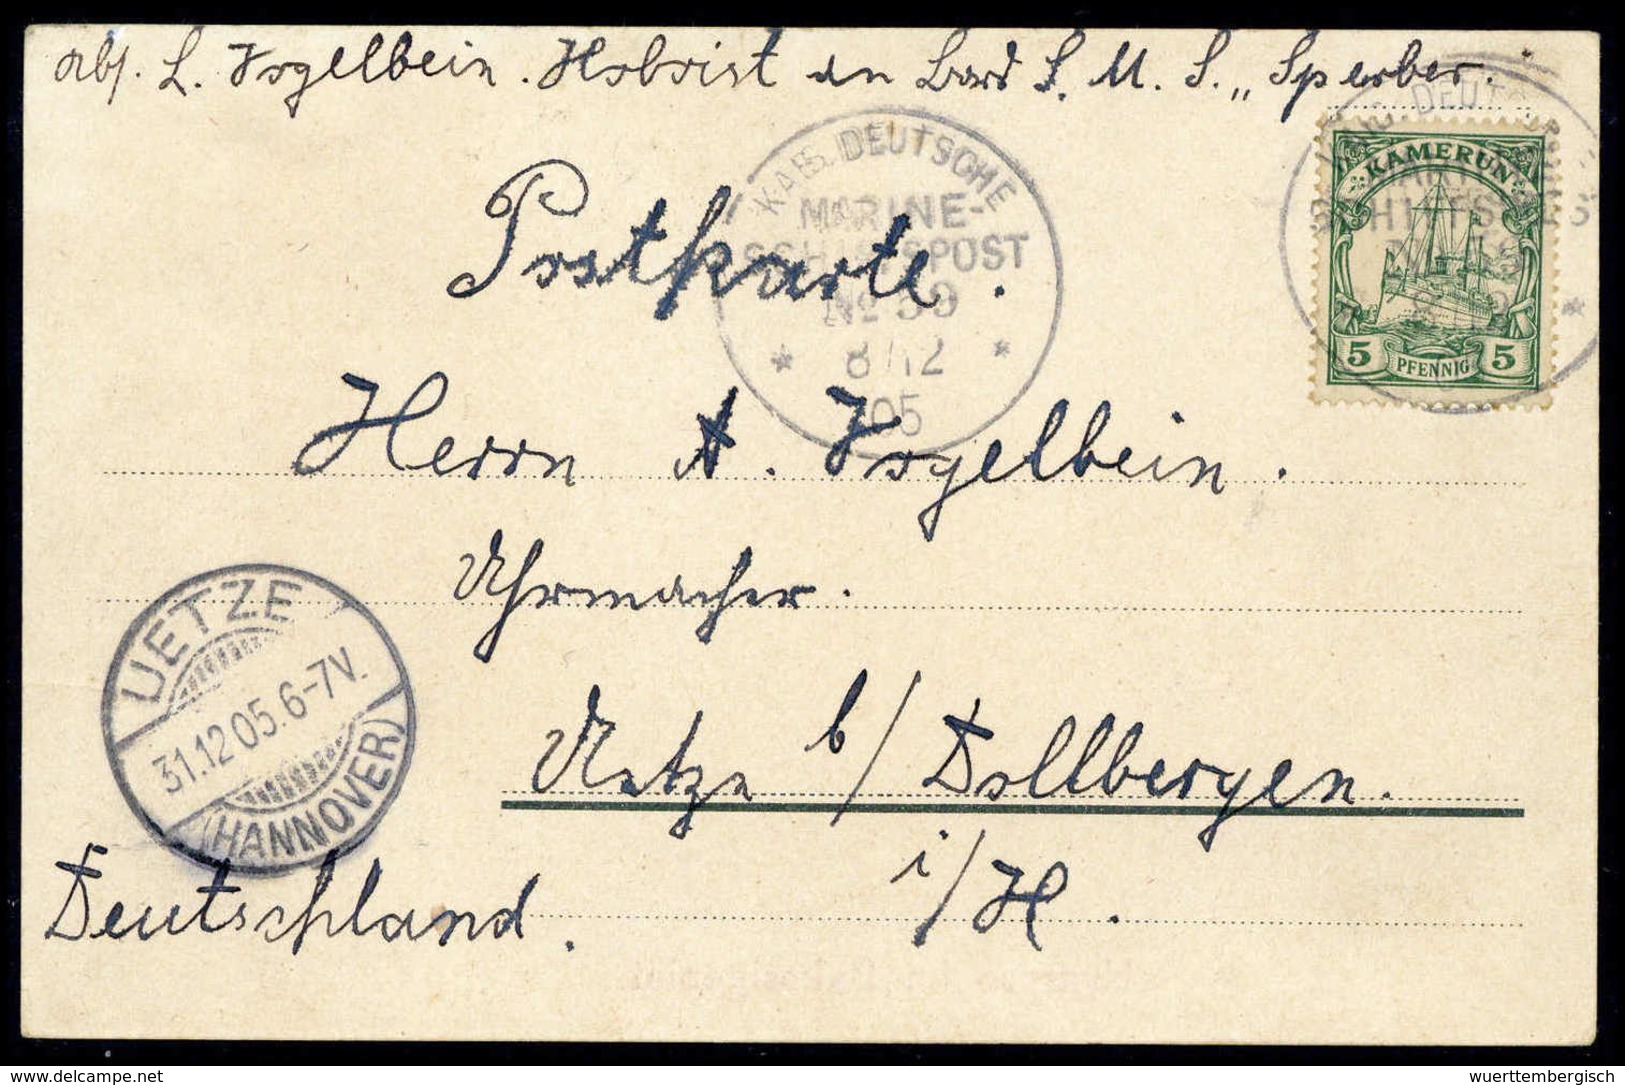 Abs. L. Vogelbein. Hoboist an Bord S. M. S. „Sperber.
KAIS. DEUTSCHE
MARINE-
SCHIFFSPOST
No 59
8/12
05
KAMERUN
5 PFENNIG 5
Postkarte.
Herrn A. Vogelbein.
Uhrmacher.
UETZE
31.12 05. 6-7V.
(HANNOVER)
Uetze b/ Dollbergen.
i/H.
Deutschland.
www.delcampe.net
wuerttembergisch